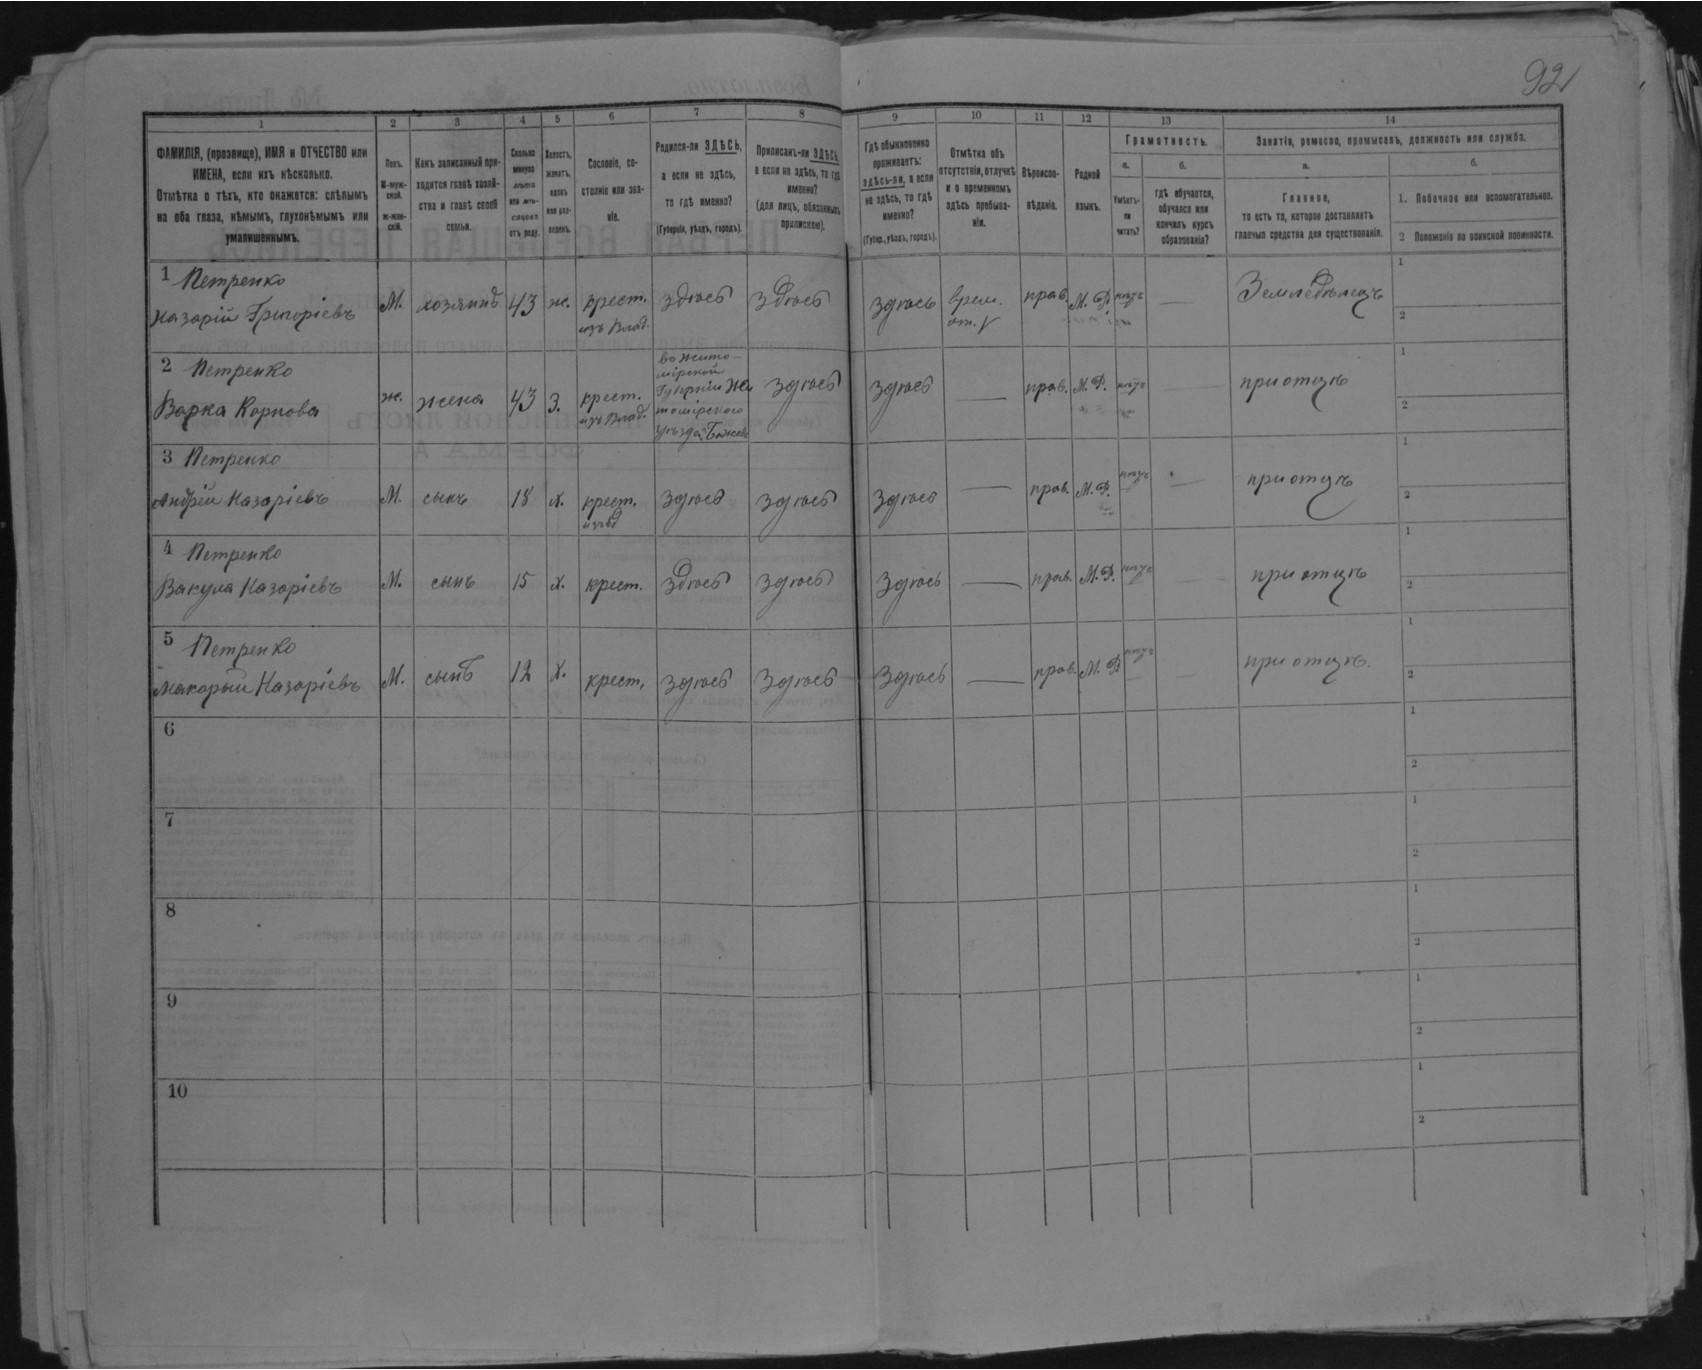 92
1 2 3 4 5 6 7 8 9 10 11 12 13 14
ФАМИЛІЯ, (прозвище), ИМЯ и ОТЧЕСТВО или
ИМЕНА, если ихъ нѣсколько.
Отмѣтка о тѣхъ, кто окажется: слѣпымъ
на оба глаза, нѣмымъ, глухонѣмымъ или
умалишеннымъ.
Полъ.
М-муж-
ской.
Ж-жен-
скій.
Какъ записанный при-
ходится главѣ хозяй-
ства и главѣ своей
семьи.
Сколько
минуло
лѣтъ
или мѣ-
сяцевъ
отъ роду.
Холостъ,
женатъ,
вдовъ
или раз-
веденъ.
Сословіе, со-
стояніе или зва-
ніе.
Родился-ли ЗДѢСЬ,
а если не здѣсь,
то гдѣ именно?
(Губернія, уѣздъ, городъ).
Приписанъ-ли ЗДѢСЬ,
а если не здѣсь, то гдѣ
именно?
(для лицъ, обязанныхъ
припискою).
Гдѣ обыкновенно
проживаетъ:
здѣсь-ли, а если
не здѣсь, то гдѣ
именно?
(Губер., уѣздъ, городъ).
Отмѣтка объ
отсутствіи, отлучкѣ
и о временномъ
здѣсь пребыва-
ніи.
Вѣроиспо-
вѣданіе.
Родной
языкъ.
Грамотность.
а.
Умѣетъ-
ли
читать?
б.
гдѣ обучается,
обучался или
кончилъ курсъ
образованія?
Занятіе, ремесло, промыселъ, должность или служба.
а.
Главное,
то есть то, которое доставляетъ
главныя средства для существованія.
б.
1. Побочное или вспомогательное.
2 Положеніе по воинской повинности.
1 Петренко
Назарій Григоріевъ М. хозяинъ 43 ж. крест. здѣсь здѣсь здѣсь врем. прав. М. Р. нѣтъ — Земледѣлецъ 1
изъ Влад. от. 2
2 Петренко
Варка Карпова ж. жена 43 З. крест. здѣсь здѣсь — прав. М. Р. нѣтъ — при отцѣ 1
изъ Влад. 2
в Жито-
мірской
Губерніи Жи
томірского
уѣзда
3 Петренко
Андрей Назаріевъ М. сынъ 18 х. крест. здѣсь здѣсь здѣсь — прав. М. Р. нѣтъ — при отцѣ 1
2
4 Петренко
Вакула Назаріевъ М. сынъ 15 х. крест. здѣсь здѣсь здѣсь — прав. М. Р. нѣтъ — при отцѣ 1
2
5 Петренко
Макарый Назаріевъ М. сынъ 12 х. крест. здѣсь здѣсь здѣсь — прав. М. Р — при отцѣ. 1
2
6 1
2
7 1
2
8 1
2
9 1
2
10 1
2